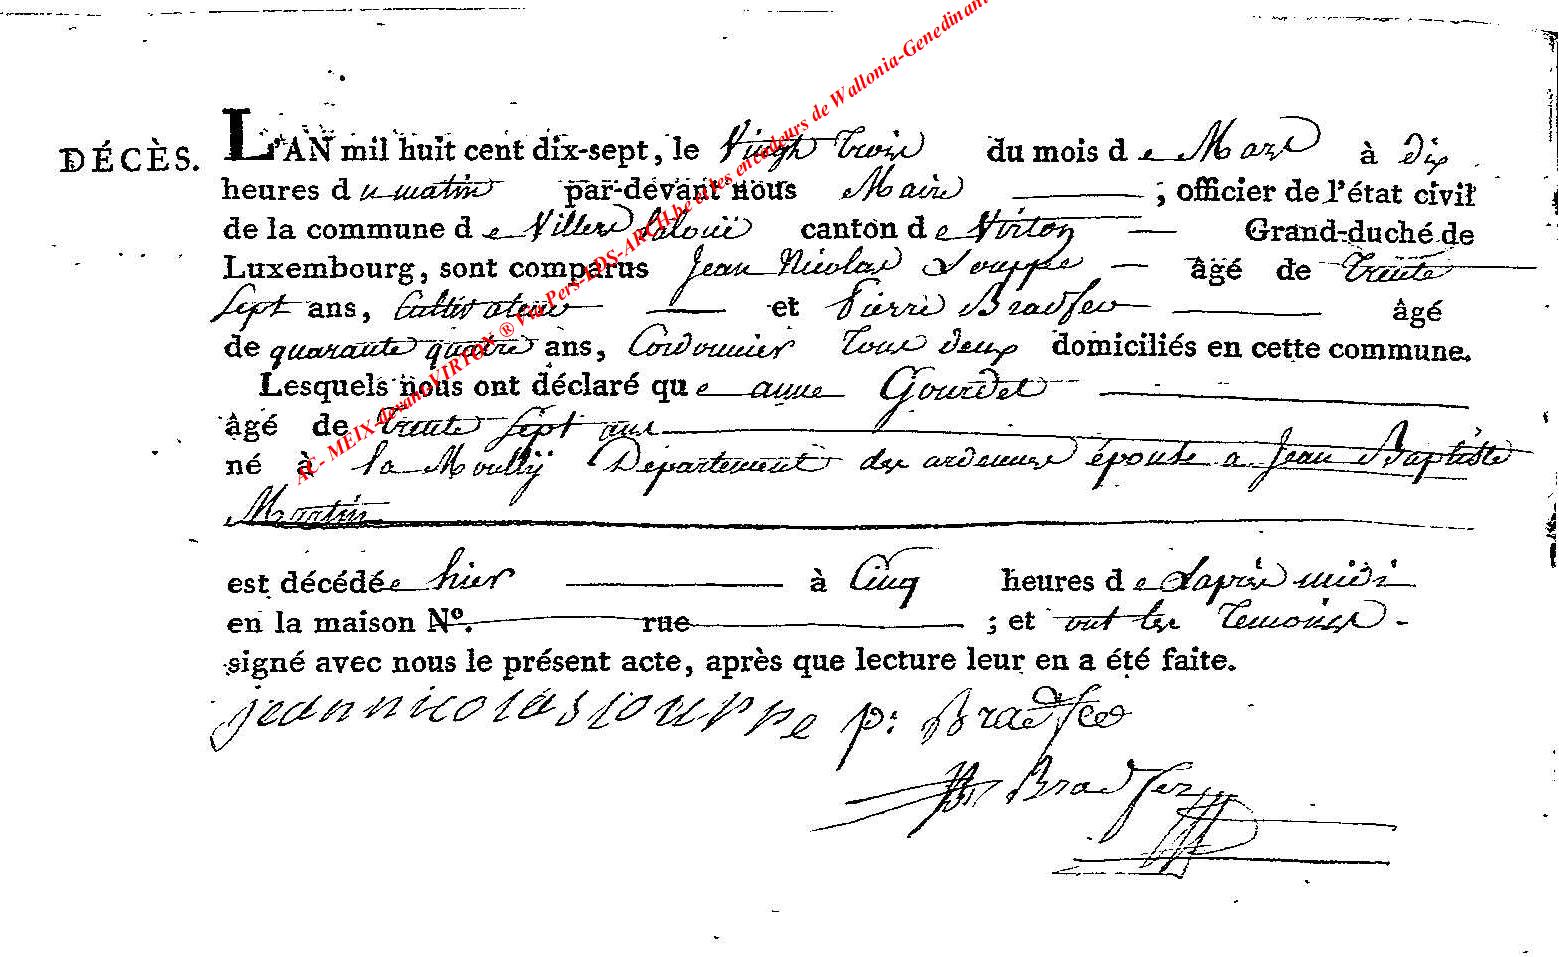 AC- MEIX-devant-VIRTON ® via Pers-LDS-ARCH.be et les encodeurs de Wallonia-Genedinant
DÉCÈS. L'AN mil huit cent dix-sept, le vingt trois du mois de Mars à dix
heures du matin par-devant nous Maire ; officier de l'état civil
de la commune de Villers laloüe canton de Virton Grand-duché de
Luxembourg, sont comparus Jean Nicolas Louppe âgé de trente
sept ans, Cultivateur et Pierre Bradfer âgé
de quarante quatre ans, Cordonnier tous deux domiciliés en cette commune.
Lesquels nous ont déclaré que anne Gourdet
âgé de trente sept ans
né à la Moullÿ Département des ardennes épouse a Jean Baptiste
Martin
est décédée hier à Cinq heures de Laprès midi
en la maison N°. rue ; et ont les temoins
signé avec nous le présent acte, après que lecture leur en a été faite.
jean nicolas louppe p: Bradfer
Bradfer